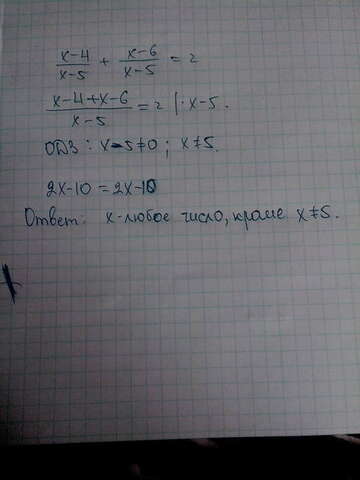 x-4/x-5 + x-6/x-5 = 2
x-4+x-6/x-5 = 2 | · x-5.
ОДЗ: x-5≠0; x≠5.
2x-10=2x-10
Ответ: x-любое число, кроме x≠5.